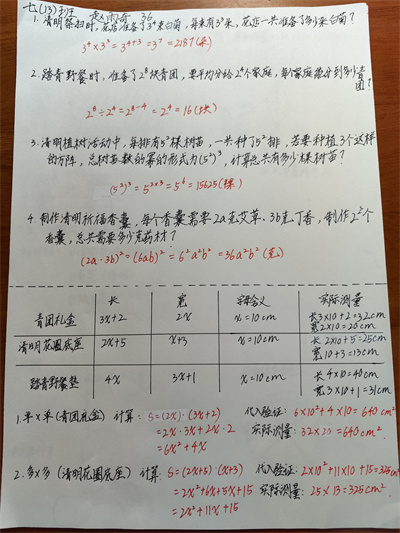 七(13)班 赵雨奇 36
1. 清明祭扫时,花店准备了3⁴束白菊,每束有3³朵,花店一共准备了多少朵白菊?
3⁴×3³=3⁴⁺³=3⁷=2187(朵)
2. 踏青野餐时,准备了2⁸块青团,要平均分给2⁴个家庭,每个家庭能分到多少块青团?
2⁸÷2⁴=2⁸⁻⁴=2⁴=16(块)
3. 清明植树活动中,每排有5²棵树苗,一共种了5²排,若要种植3个这样
的方阵,总树苗数的幂的形式为(5²)³,计算总共有多少棵树苗?
(5²)³=5²ˣ³=5⁶=15625(棵)
4. 制作清明祈福香囊,每个香囊需要2a克艾草、3b克丁香,制作2²个
香囊,总共需要多少克药材?
(2a·3b)²=(6ab)²=6²a²b²=36a²b²(克)
长 宽 字母含义 实际测量
青团礼盒 3x+2 2x x=10cm 长3×10+2=32cm
宽2×10=20cm
清明花圈底座 2x+5 x+3 x=10cm 长2×10+5=25cm
宽10+3=13cm
踏青野餐垫 4x 3x+1 x=10cm 长4×10=40cm
宽3×10+1=31cm
1. 单×单(青团礼盒) 计算: S=(2x)·(3x+2) 代入验证: 6×10²+4×10=640cm²
=2x·3x+2x·2 实际测量: 32×20=640cm²
=6x²+4x
2. 多×多(清明花圈底座) 计算: S=(2x+5)·(x+3) 代入验证: 2×10²+11×10+15=325cm²
=2x²+6x+5x+15 实际测量: 25×13=325cm²
=2x²+11x+15